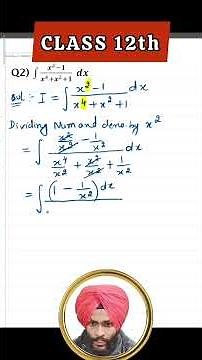 CLASS 12th
Q2) ∫ x²-1 / x⁴+x²+1 dx
Sol:- I = ∫ x²-1 / x⁴+x²+1 dx
Dividing Num and deno. by x²
= ∫ (x²/x² - 1/x²) / (x⁴/x² + x²/x² + 1/x²) dx
= ∫ (1 - 1/x²) dx